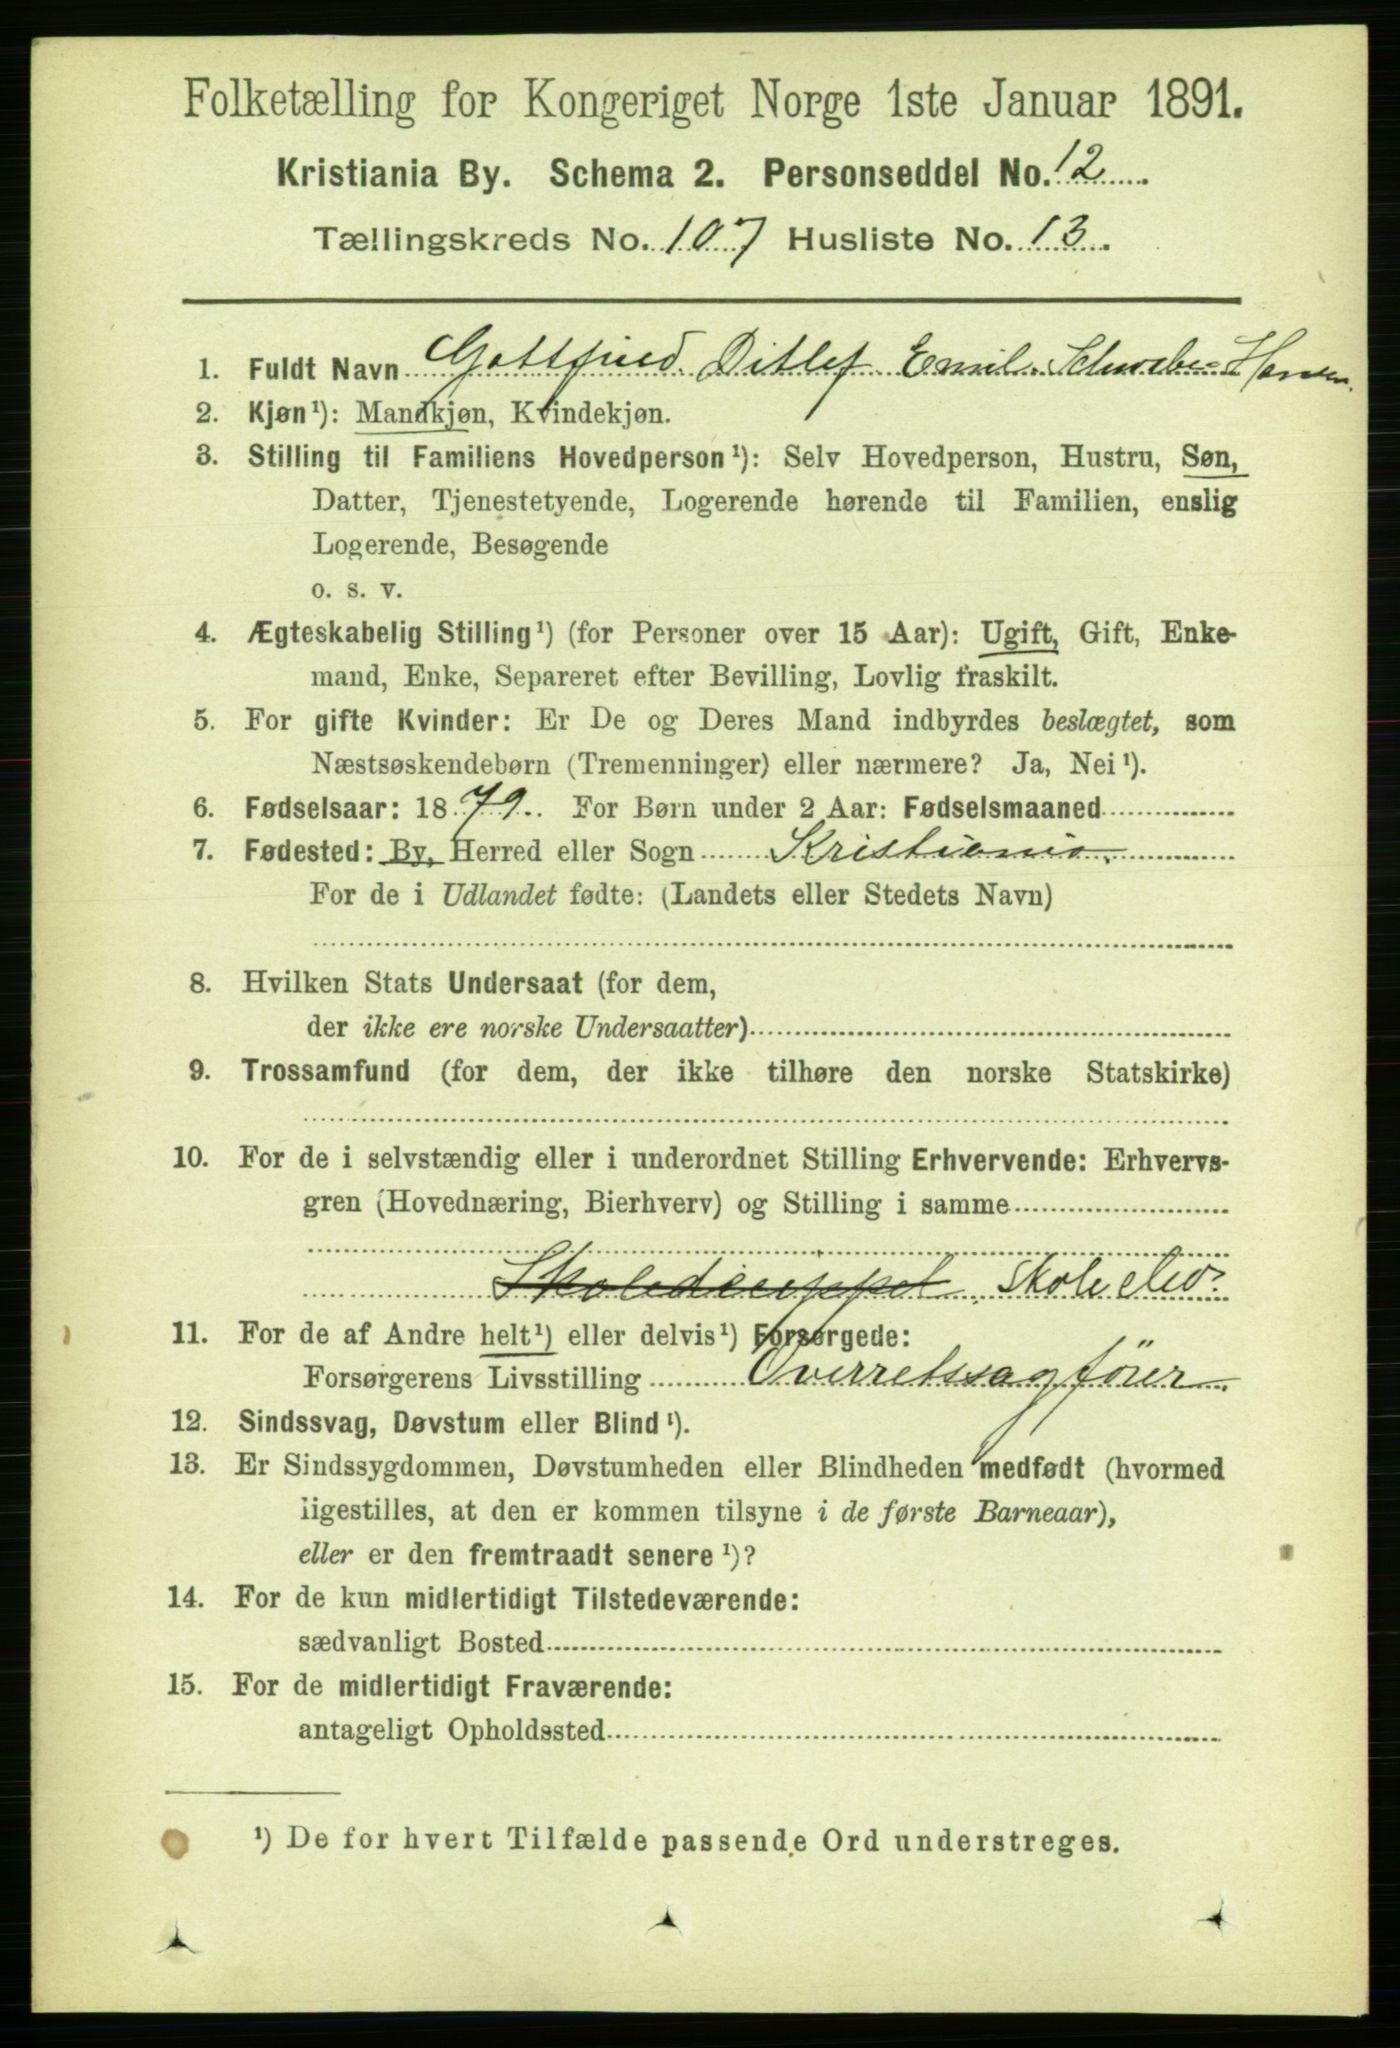 Folketælling for Kongeriget Norge 1ste Januar 1891.
Kristiania By. Schema 2. Personseddel No. 12.
Tællingskreds No. 107 Husliste No. 13.
1. Fuldt Navn Gottfried Ditlef Emil Hansen.
2. Kjøn¹): Mandkjøn, Kvindekjøn.
3. Stilling til Familiens Hovedperson¹): Selv Hovedperson, Hustru, Søn,
Datter, Tjenestetyende, Logerende hørende til Familien, enslig
Logerende, Besøgende
o. s. v.
4. Ægteskabelig Stilling¹) (for Personer over 15 Aar): Ugift, Gift, Enke-
mand, Enke, Separeret efter Bevilling, Lovlig fraskilt.
5. For gifte Kvinder: Er De og Deres Mand indbyrdes beslægtet, som
Næstsøskendebørn (Tremenninger) eller nærmere? Ja, Nei¹).
6. Fødselsaar: 1879. For Børn under 2 Aar: Fødselsmaaned
7. Fødested: By, Herred eller Sogn Kristiania.
For de i Udlandet fødte: (Landets eller Stedets Navn)
8. Hvilken Stats Undersaat (for dem,
der ikke ere norske Undersaatter)
9. Trossamfund (for dem, der ikke tilhøre den norske Statskirke)
10. For de i selvstændig eller i underordnet Stilling Erhvervende: Erhvervs-
gren (Hovednæring, Bierhverv) og Stilling i samme
Skoleelev
11. For de af Andre helt¹) eller delvis¹) Forsørgede:
Forsørgerens Livsstilling Overretssagfører
12. Sindssvag, Døvstum eller Blind¹).
13. Er Sindssygdommen, Døvstumheden eller Blindheden medfødt (hvormed
ligestilles, at den er kommen tilsyne i de første Barneaar),
eller er den fremtraadt senere¹)?
14. For de kun midlertidigt Tilstedeværende:
sædvanligt Bosted
15. For de midlertidigt Fraværende:
antageligt Opholdssted
¹) De for hvert Tilfælde passende Ord understreges.